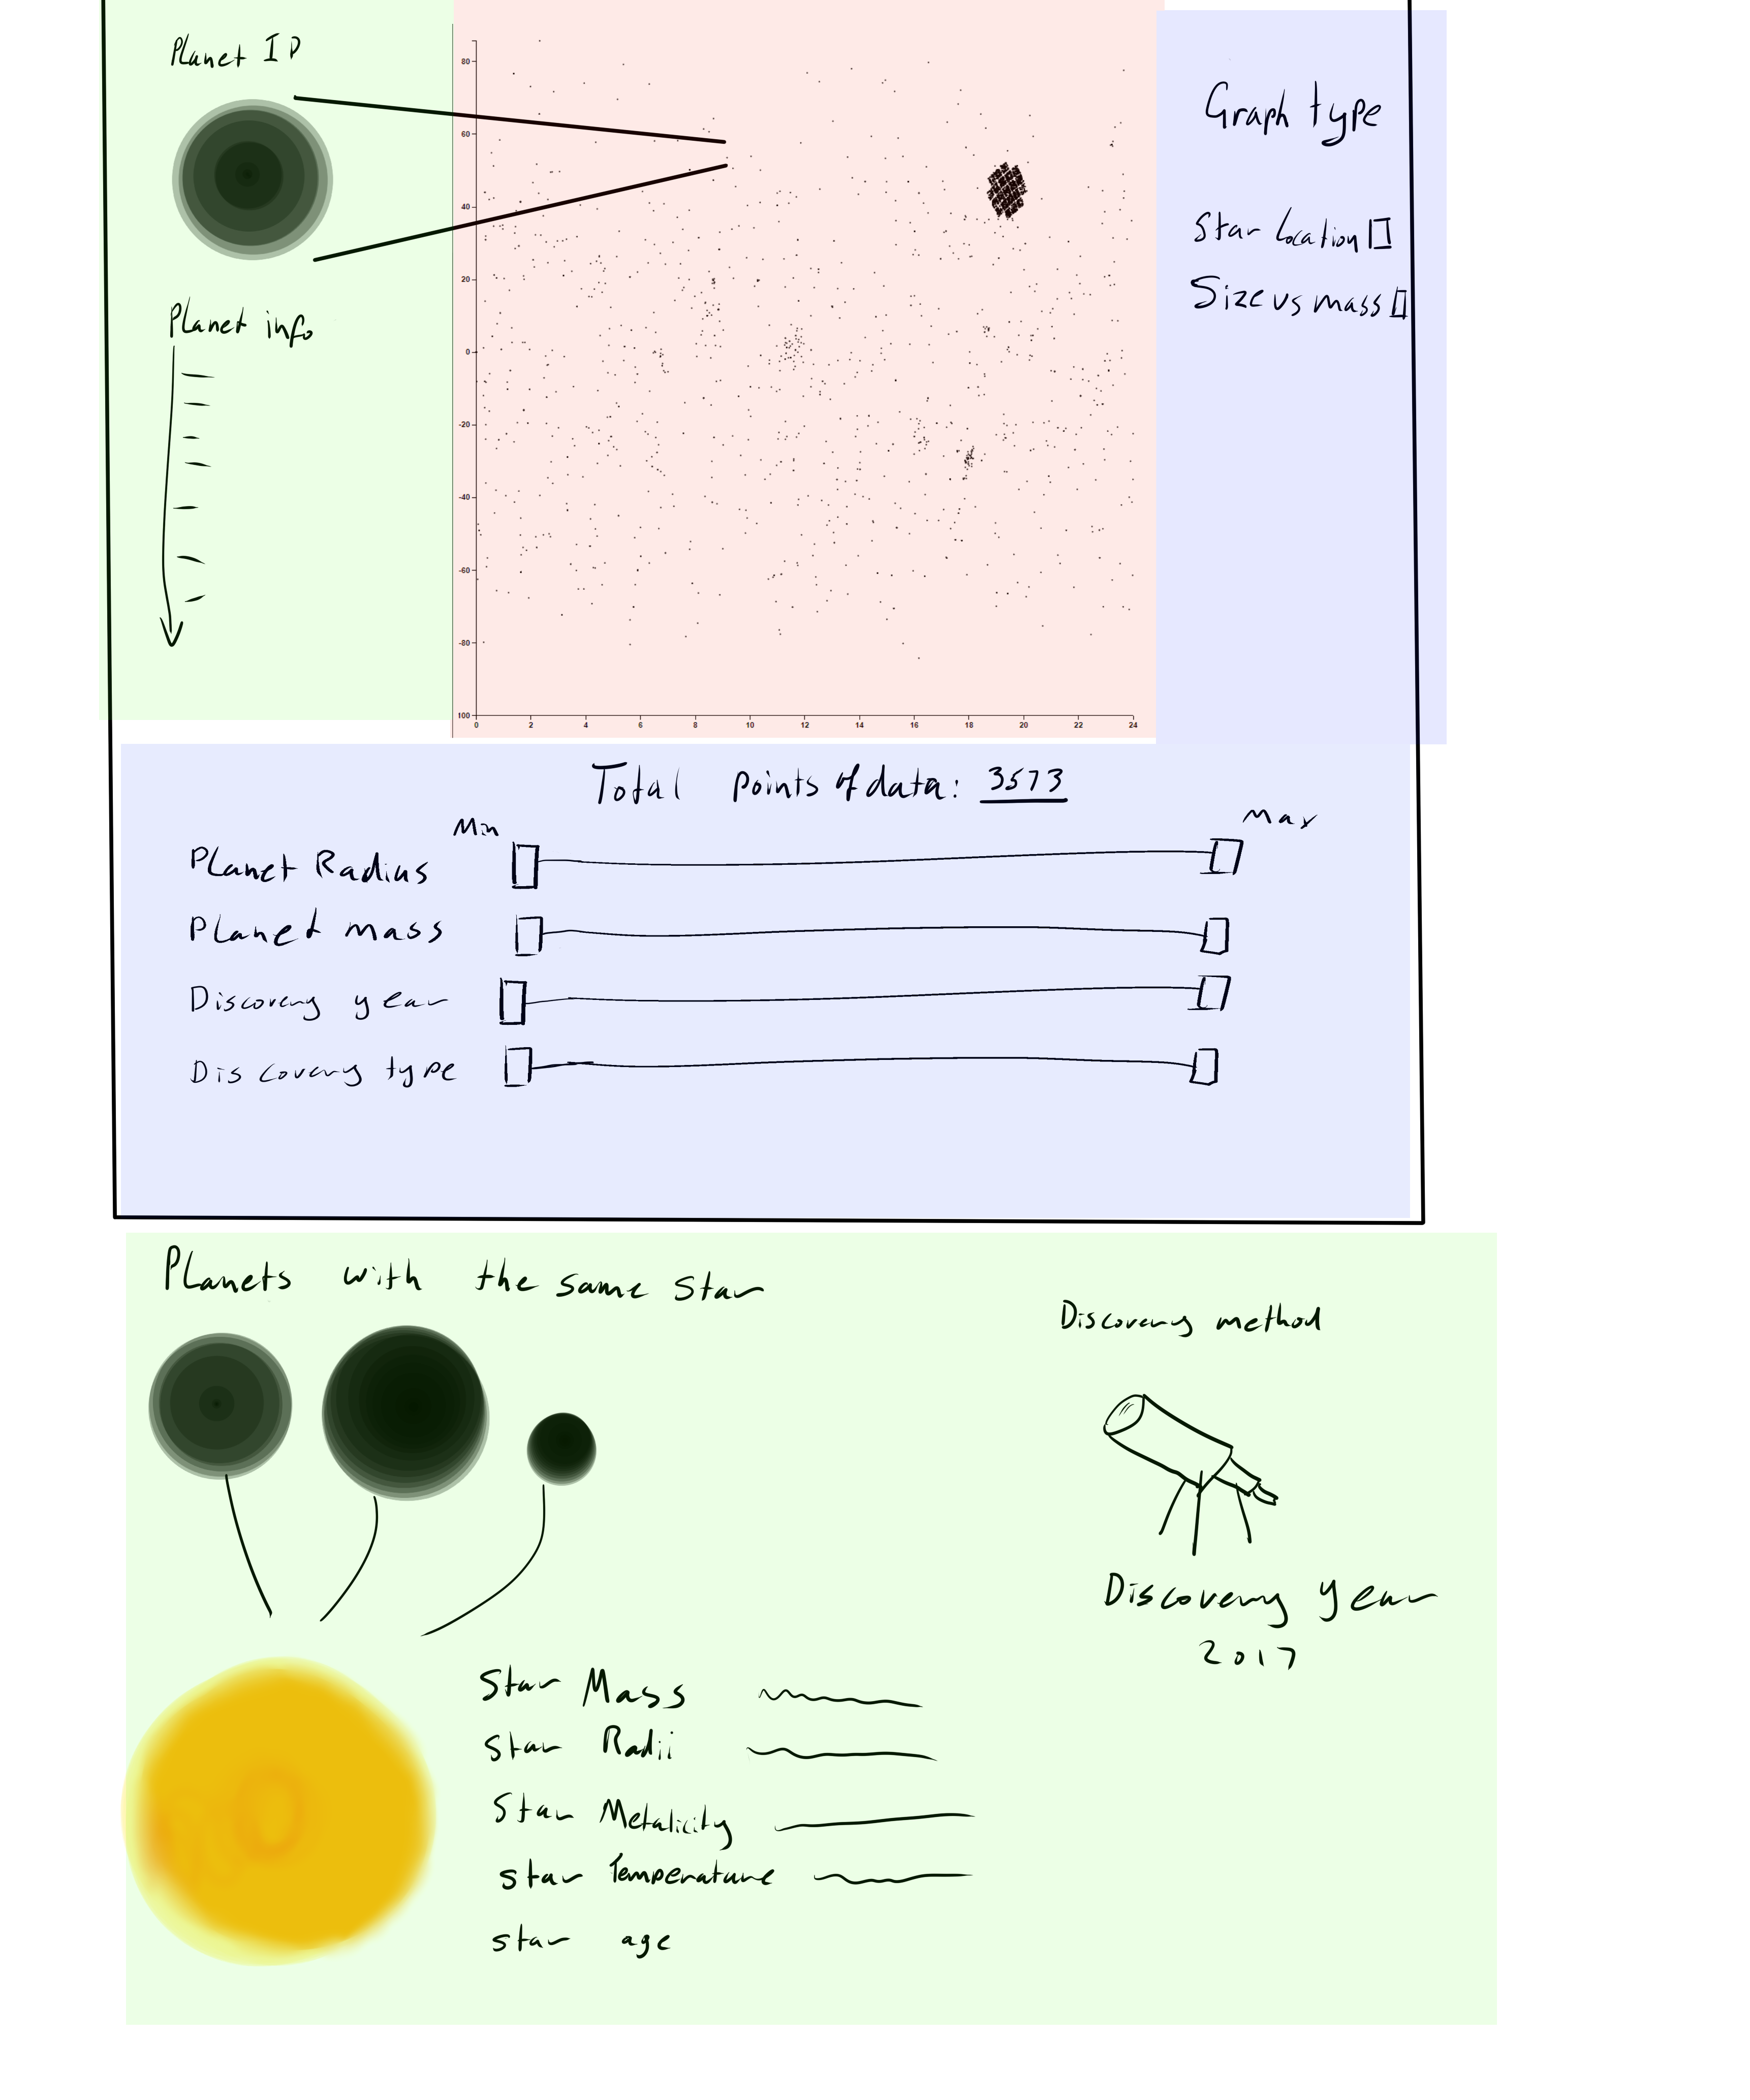 Planet ID
Planet info
80
60
40
20
0
-20
-40
-60
-80
100
0 2 4 6 8 10 12 14 16 18 20 22 24
Graph type
Star Location
Size vs mass
Total points of data: 3573
Min Max
Planet Radius
Planet mass
Discovery year
Discovery type
Planets with the same star
Discovery method
Discovery year
2017
Star Mass
Star Radii
Star Metalicity
star Temperature
star age